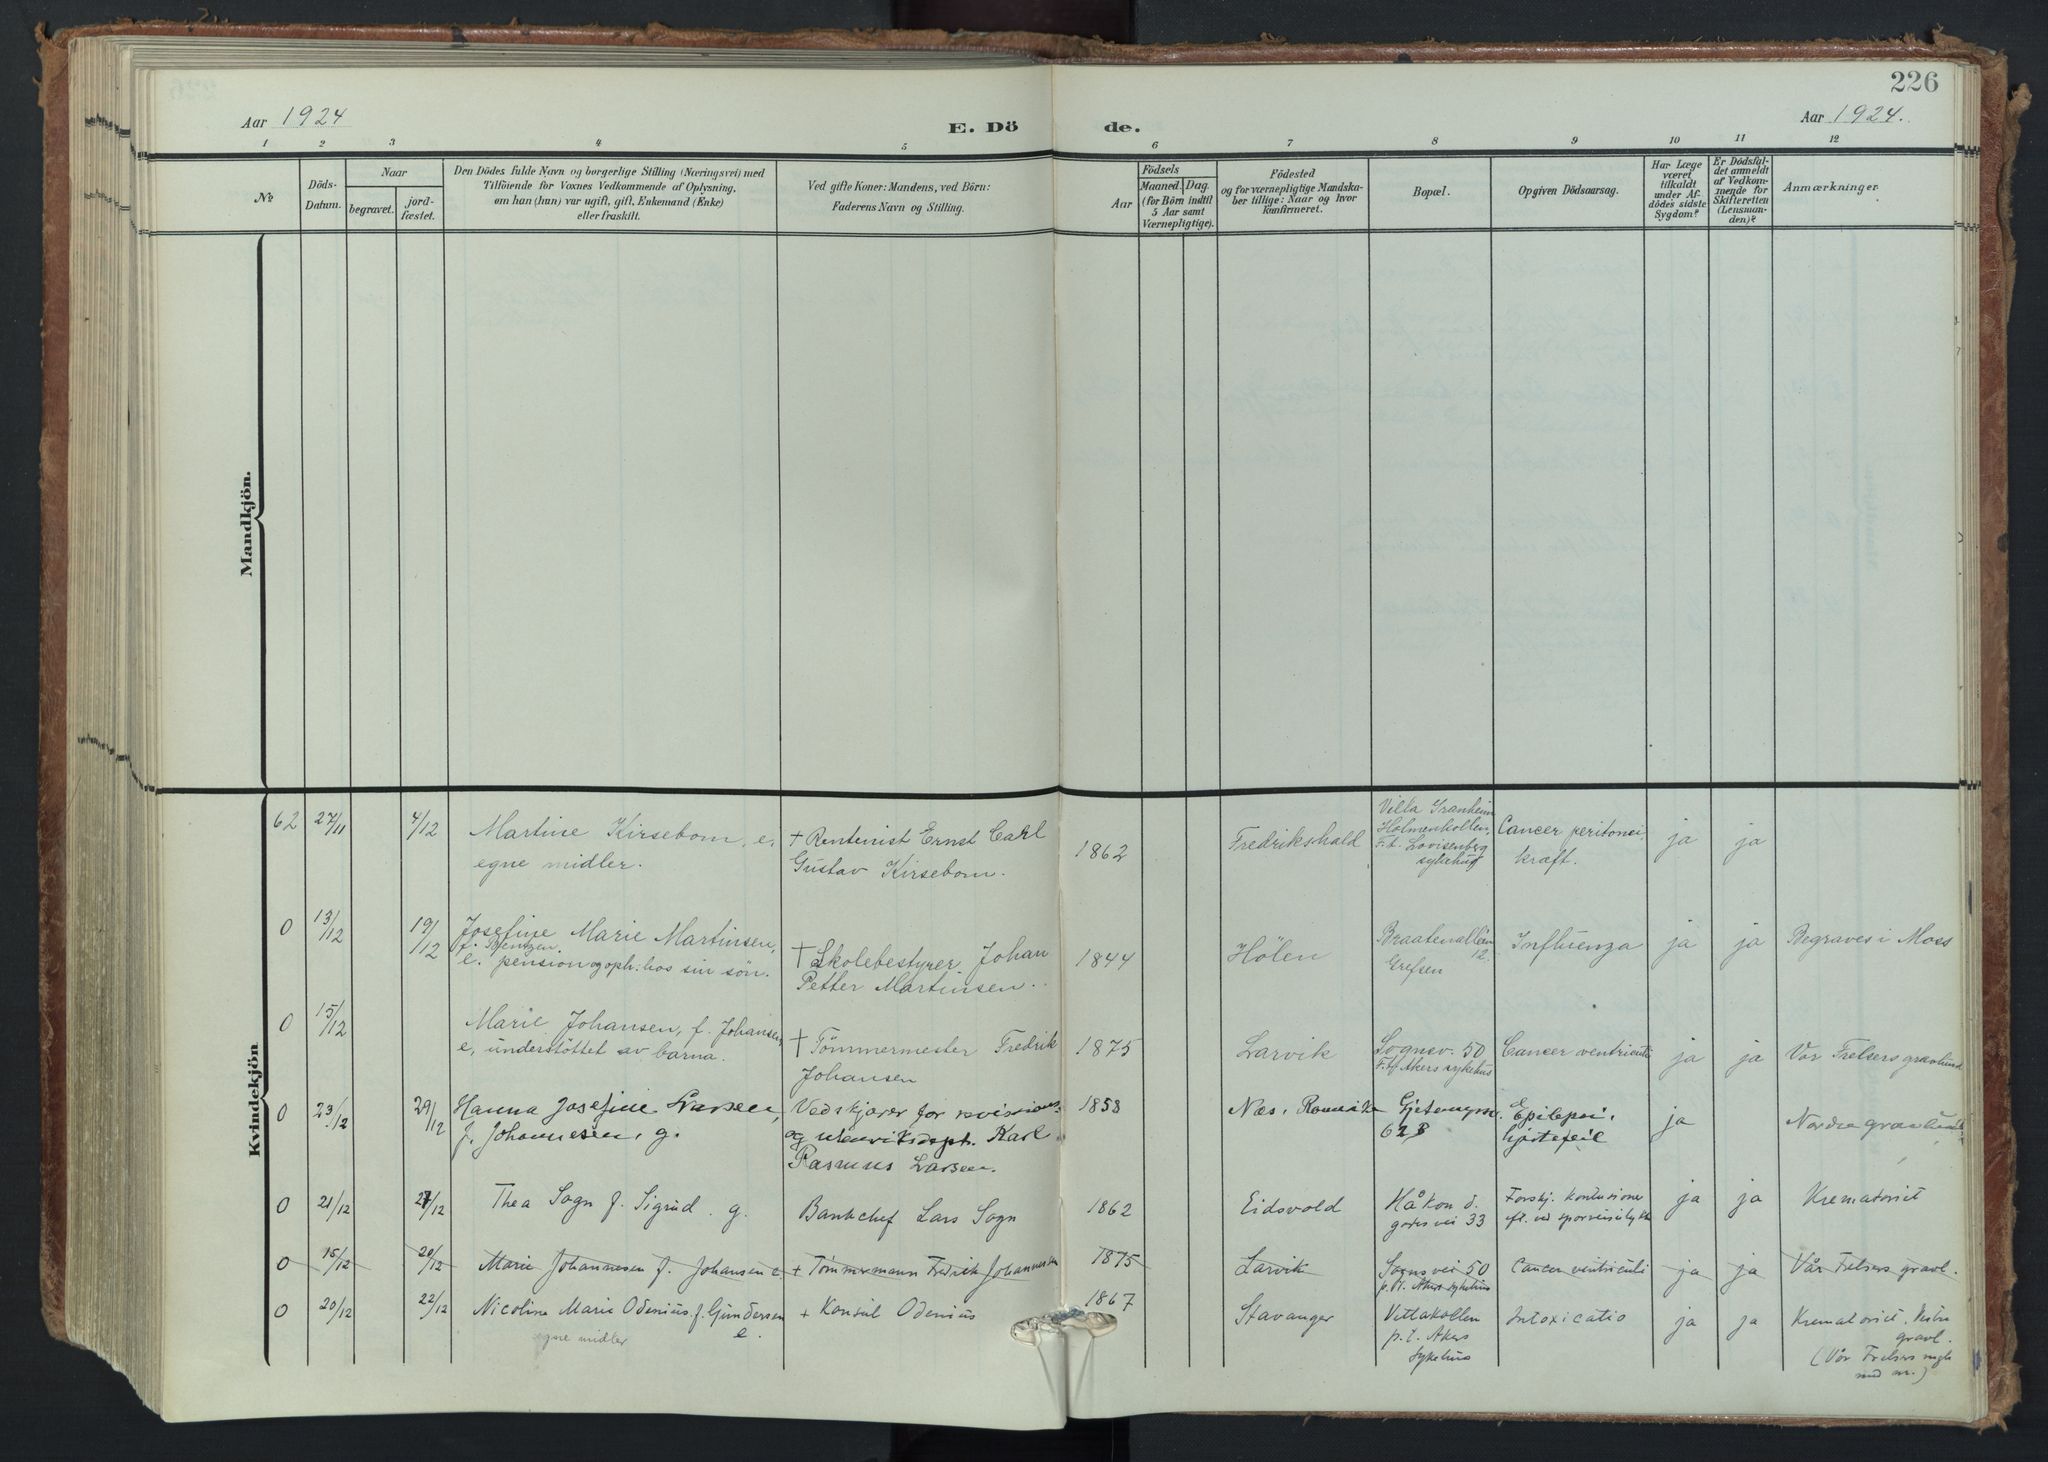 226
Aar 1924
E. Dö
de.
Aar 1924.
1 2 3 4 5 6 7 8 9 10 11 12
№
Döds-
Datum.
Naar
begravet.
jord-
fæstet.
Den Dödes fulde Navn og borgerlige Stilling (Næringsvei) med
Tilföiende for Voxnes Vedkommende af Oplysning,
om han (hun) var ugift, gift, Enkemand (Enke)
eller fraskilt.
Ved gifte Koner: Mandens, ved Börn:
Faderens Navn og Stilling.
Födsels
Aar
Maaned. Dag.
(for Börn indtil
5 Aar samt
Værnepligtige).
Födested
og for værnepligtige Mandska-
ber tillige: Naar og hvor
konfirmeret.
Bopæl.
Opgiven Dödsaarsag.
Har Læge
været
tilkaldt
under Af-
dödes sidste
Sygdom?
Er Dödsfal-
det anmeldt
af Vedkom-
mende for
Skifteretten
(Lensman-
den)?
Anmærkninger.
Mandkjön.
Kvindekjön
62 27/11 4/12
Martine Kirsebom, e,
egne midler.
+ Rentenist Ernst Carl
Gustav Kirsebom.
1862
Fredrikshald
Villa Granheim
Holmenkollen,
F.t. Lovisenberg
sykehus
Cancer peritonei
kræft.
ja ja
0 13/12 19/12
Josefine Marie Martinsen,
f. Bentzen
e. pension og oph. hos sin sön.
+ Skolebestyrer Johan
Petter Martinsen.
1844
Hölen
Braatenalleen
12.
Grefsen
Influenza
ja ja
Begraves i Moss
0 15/12
Marie Johansen, f. Johansen,
e, understöttet av barna.
+ Tömmermester Fredrik
Johansen
1875
Larvik
Sognsv. 50
F.t. Akers sykehus
Cancer ventriculi
ja ja
Vor Frelsers gravlund
0 23/12 29/12
Hanna Josefine Larsen,
f. Johannesen, g.
Vedskjærer for revisions-
og Karl
Rasmus Larsen.
1858
Næs, Romerike
62B
Epilepsi,
hjertefeil
ja
Nordre gravlund
0 21/12 27/12
Thea Sogn f. Sigrud. g.
Bankchef Lars Sogn
1862
Eidsvold
Håkon d.
godes vei 33
Forskj. kontusioner
eft. ved sporveisulykke
ja ja
Krematoriet
0 15/12 20/12
Marie Johannesen f. Johansen e.
+ Tömmermann Fredrik Johannesen
1875
Larvik
Sognsvei 50
p.t. Akers sykehus
Cancer ventriculi
ja ja
Vår Frelsers gravl.
0 20/12 22/12
Nicoline Marie Odenius f. Gundersen
e.
egne midler
+ Konsul Odenius
1867
Stavanger
Vettakollen
p.t. Akers
sykehus
Intoxicatio
ja ja
Krematoriet, Vestre
gravl.
(Vår Frelsers
med nr.)